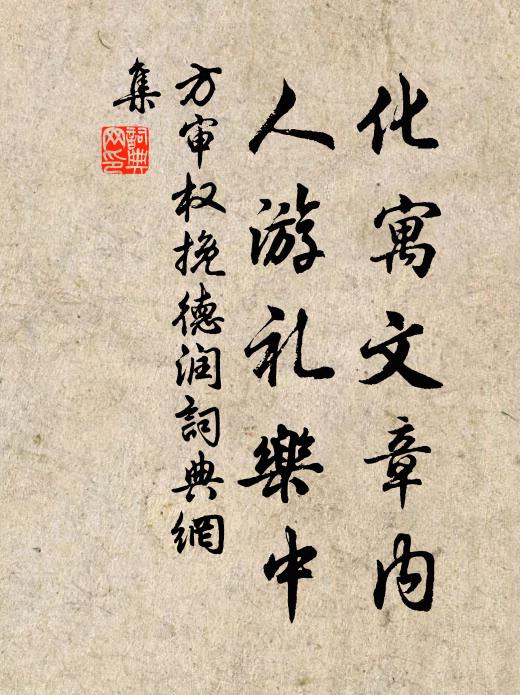 化寓文章内
人游礼樂中
方审权挽德润詞典網
集
詞典
网印